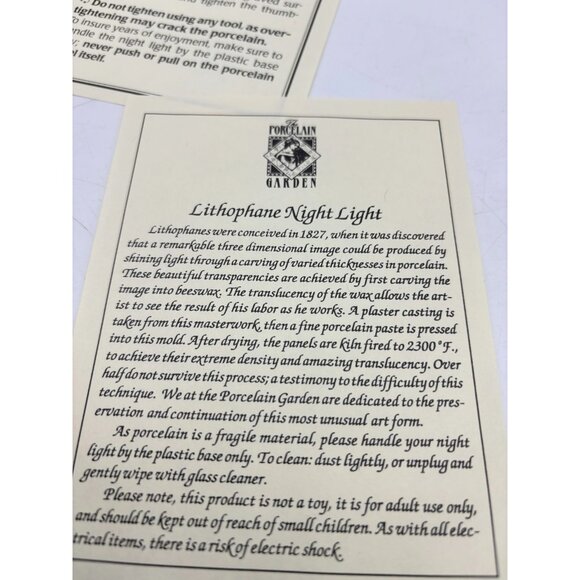 and tighten the thumb-
Do not tighten using any tool, as over-
tightening may crack the porcelain.
To insure years of enjoyment, make sure to
handle the night light by the plastic base
never push or pull on the porcelain
itself.
The
PORCELAIN
GARDEN
Lithophane Night Light
Lithophanes were conceived in 1827, when it was discovered
that a remarkable three dimensional image could be produced by
shining light through a carving of varied thicknesses in porcelain.
These beautiful transparencies are achieved by first carving the
image into beeswax. The translucency of the wax allows the art-
ist to see the result of his labor as he works. A plaster casting is
taken from this masterwork, then a fine porcelain paste is pressed
into this mold. After drying, the panels are kiln fired to 2300°F.,
to achieve their extreme density and amazing translucency. Over
half do not survive this process; a testimony to the difficulty of this
technique. We at the Porcelain Garden are dedicated to the pres-
ervation and continuation of this most unusual art form.
As porcelain is a fragile material, please handle your night
light by the plastic base only. To clean: dust lightly, or unplug and
gently wipe with glass cleaner.
Please note, this product is not a toy, it is for adult use only,
and should be kept out of reach of small children. As with all elec-
trical items, there is a risk of electric shock.